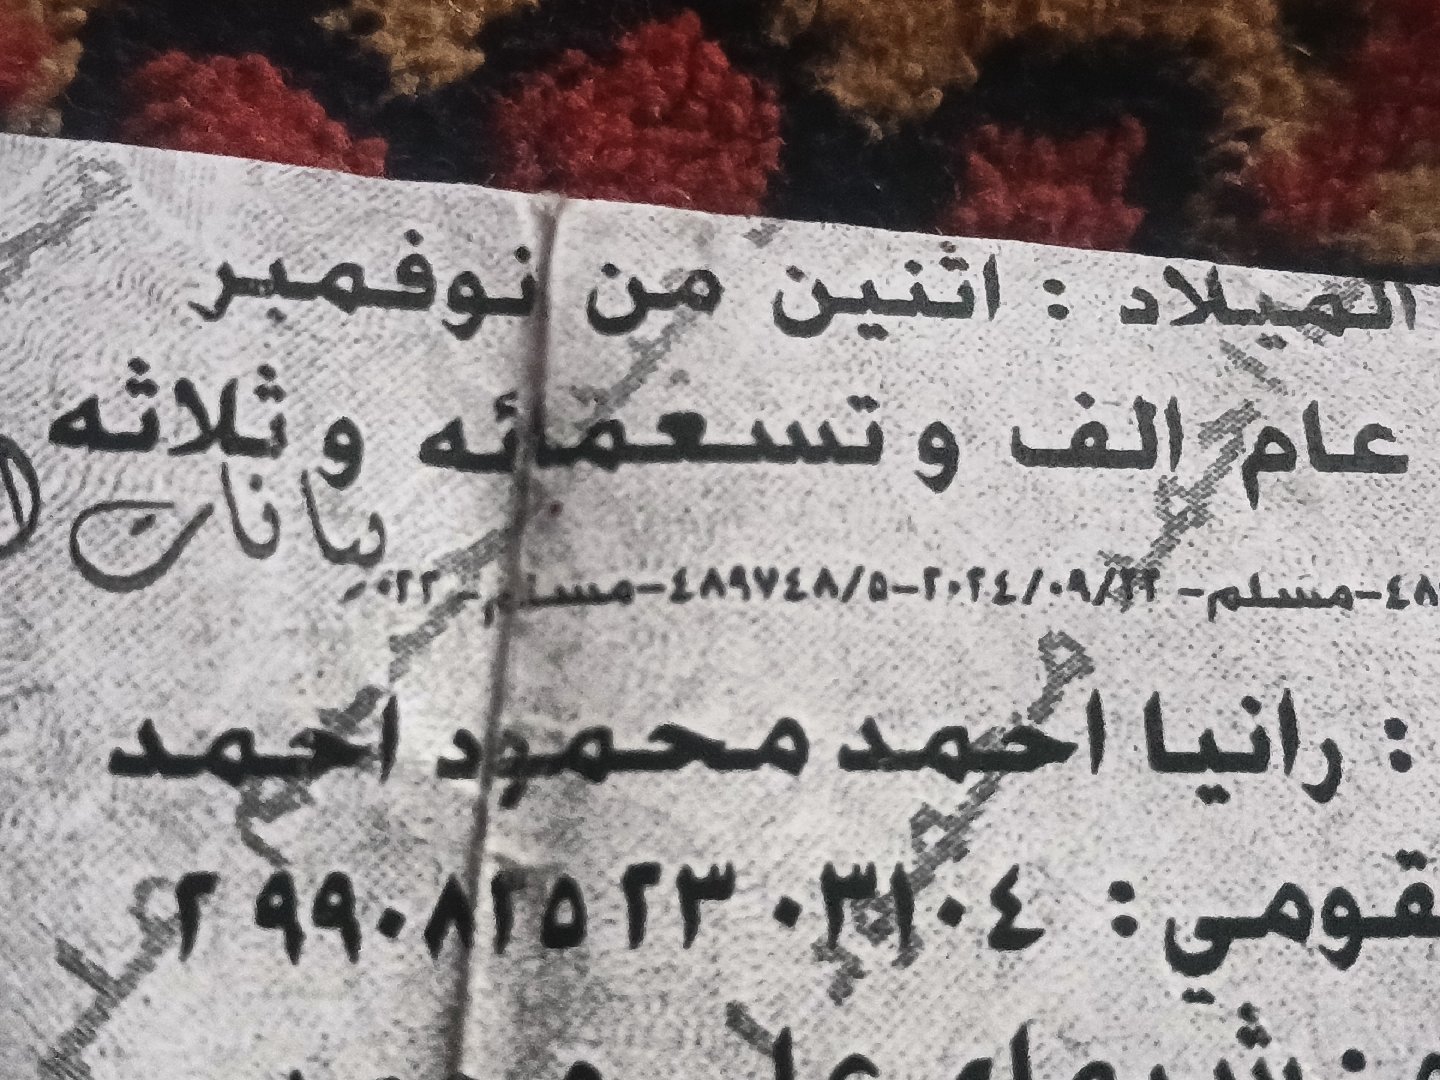 الميلاد : اثنين من نوفمبر
عام الف و تسعمائه و ثلاثه
بيانات
مسلم-٢٠٢٤/٠٩/٢٢-٤٨٩٧٤٨/٥-مسلم-
: رانيا احمد محمود احمد
قومي : ٢٩٩٠٨٢٥٢٣٠٣١٠٤